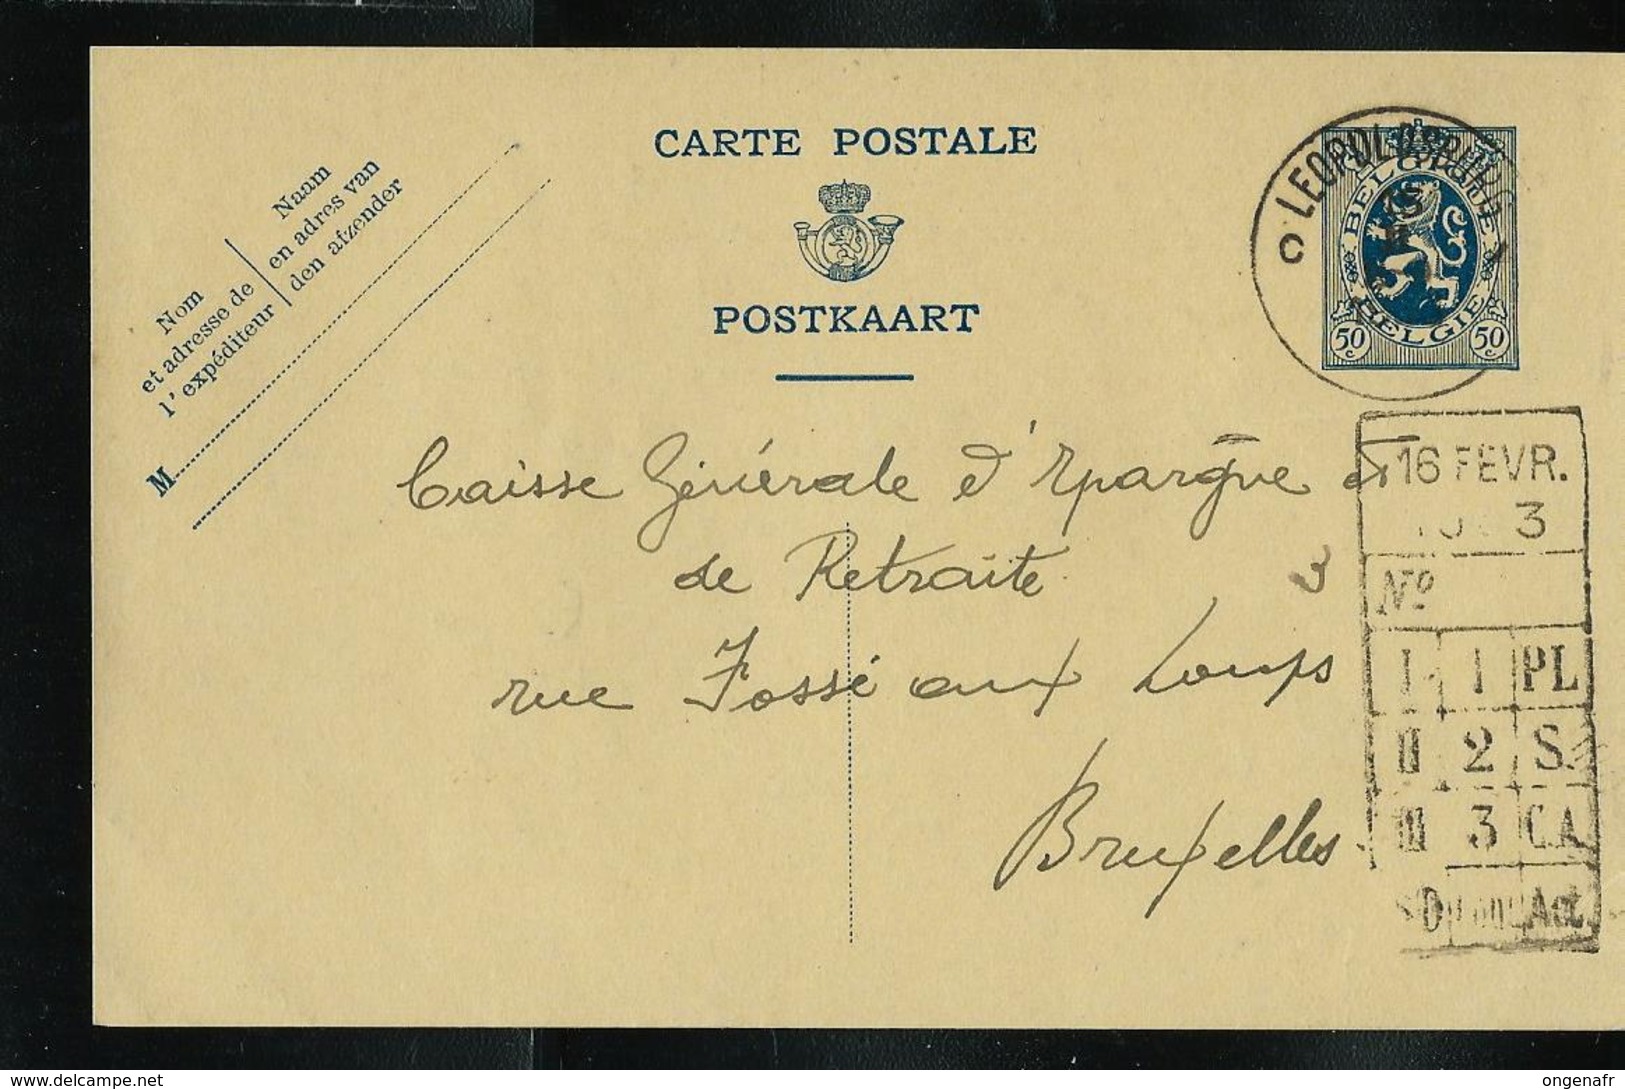 CARTE POSTALE
POSTKAART
Nom
et adresse de
l'expéditeur
Naam
en adres van
den afzender
M
LEOPOLDSBURG
15
BELGIQUE
BELGIE
50 c
50 c
Caisse Générale d'Epargne et
de Retraite
rue Fossé aux Loups
Bruxelles
3
16 FEVR.
3
Nº
I 1 PL
II 2 S.
III 3 C.A
D Act.
delcampe.net
ongenafr